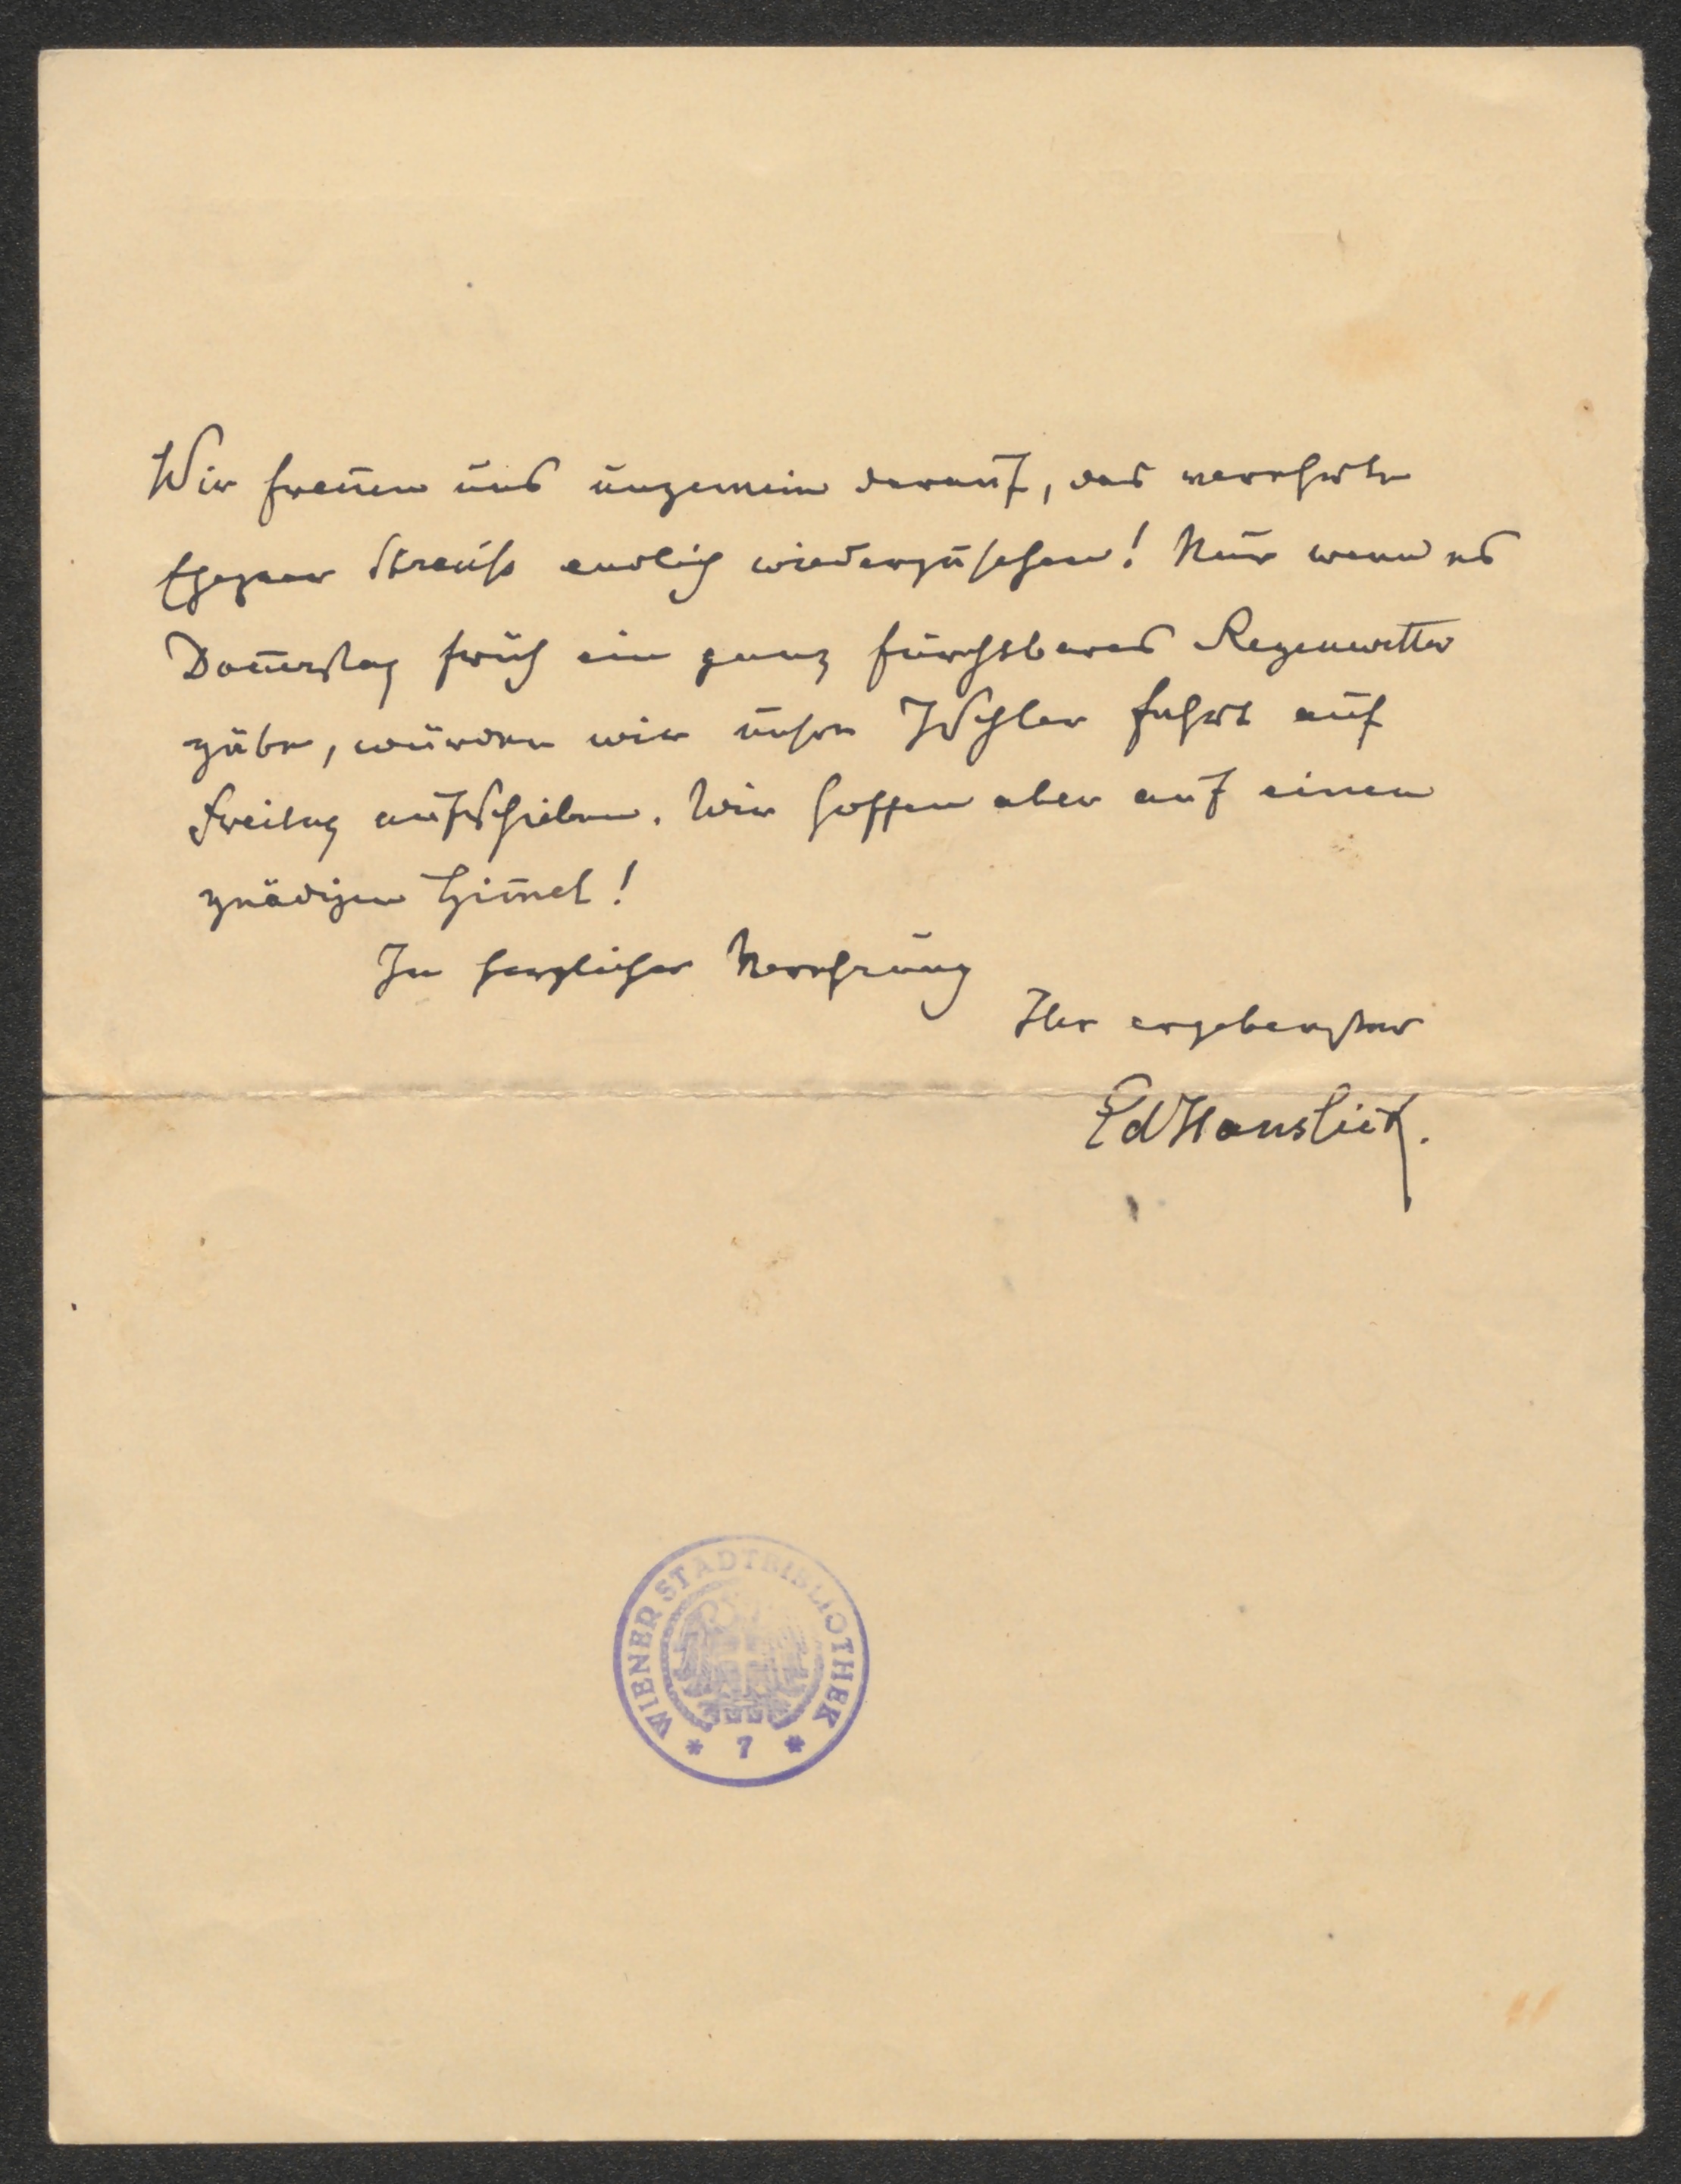 Wir freuen uns ungemein darauf, das verehrte
Ehepaar Strauß endlich wiederzusehen! Nur wenn es
Don̅erstag früh ein ganz furchtbares Regenwetter
gäbe, würden wir unsre Ischler Fahrt auf
Freitag aufschieben. Wir hoffen aber auf einen
gnädigen Him̅el!
In herzlicher Verehrung
Ihr ergebenster
EdHanslick.
WIENER STADTBIBLIOTHEK
* 7 *